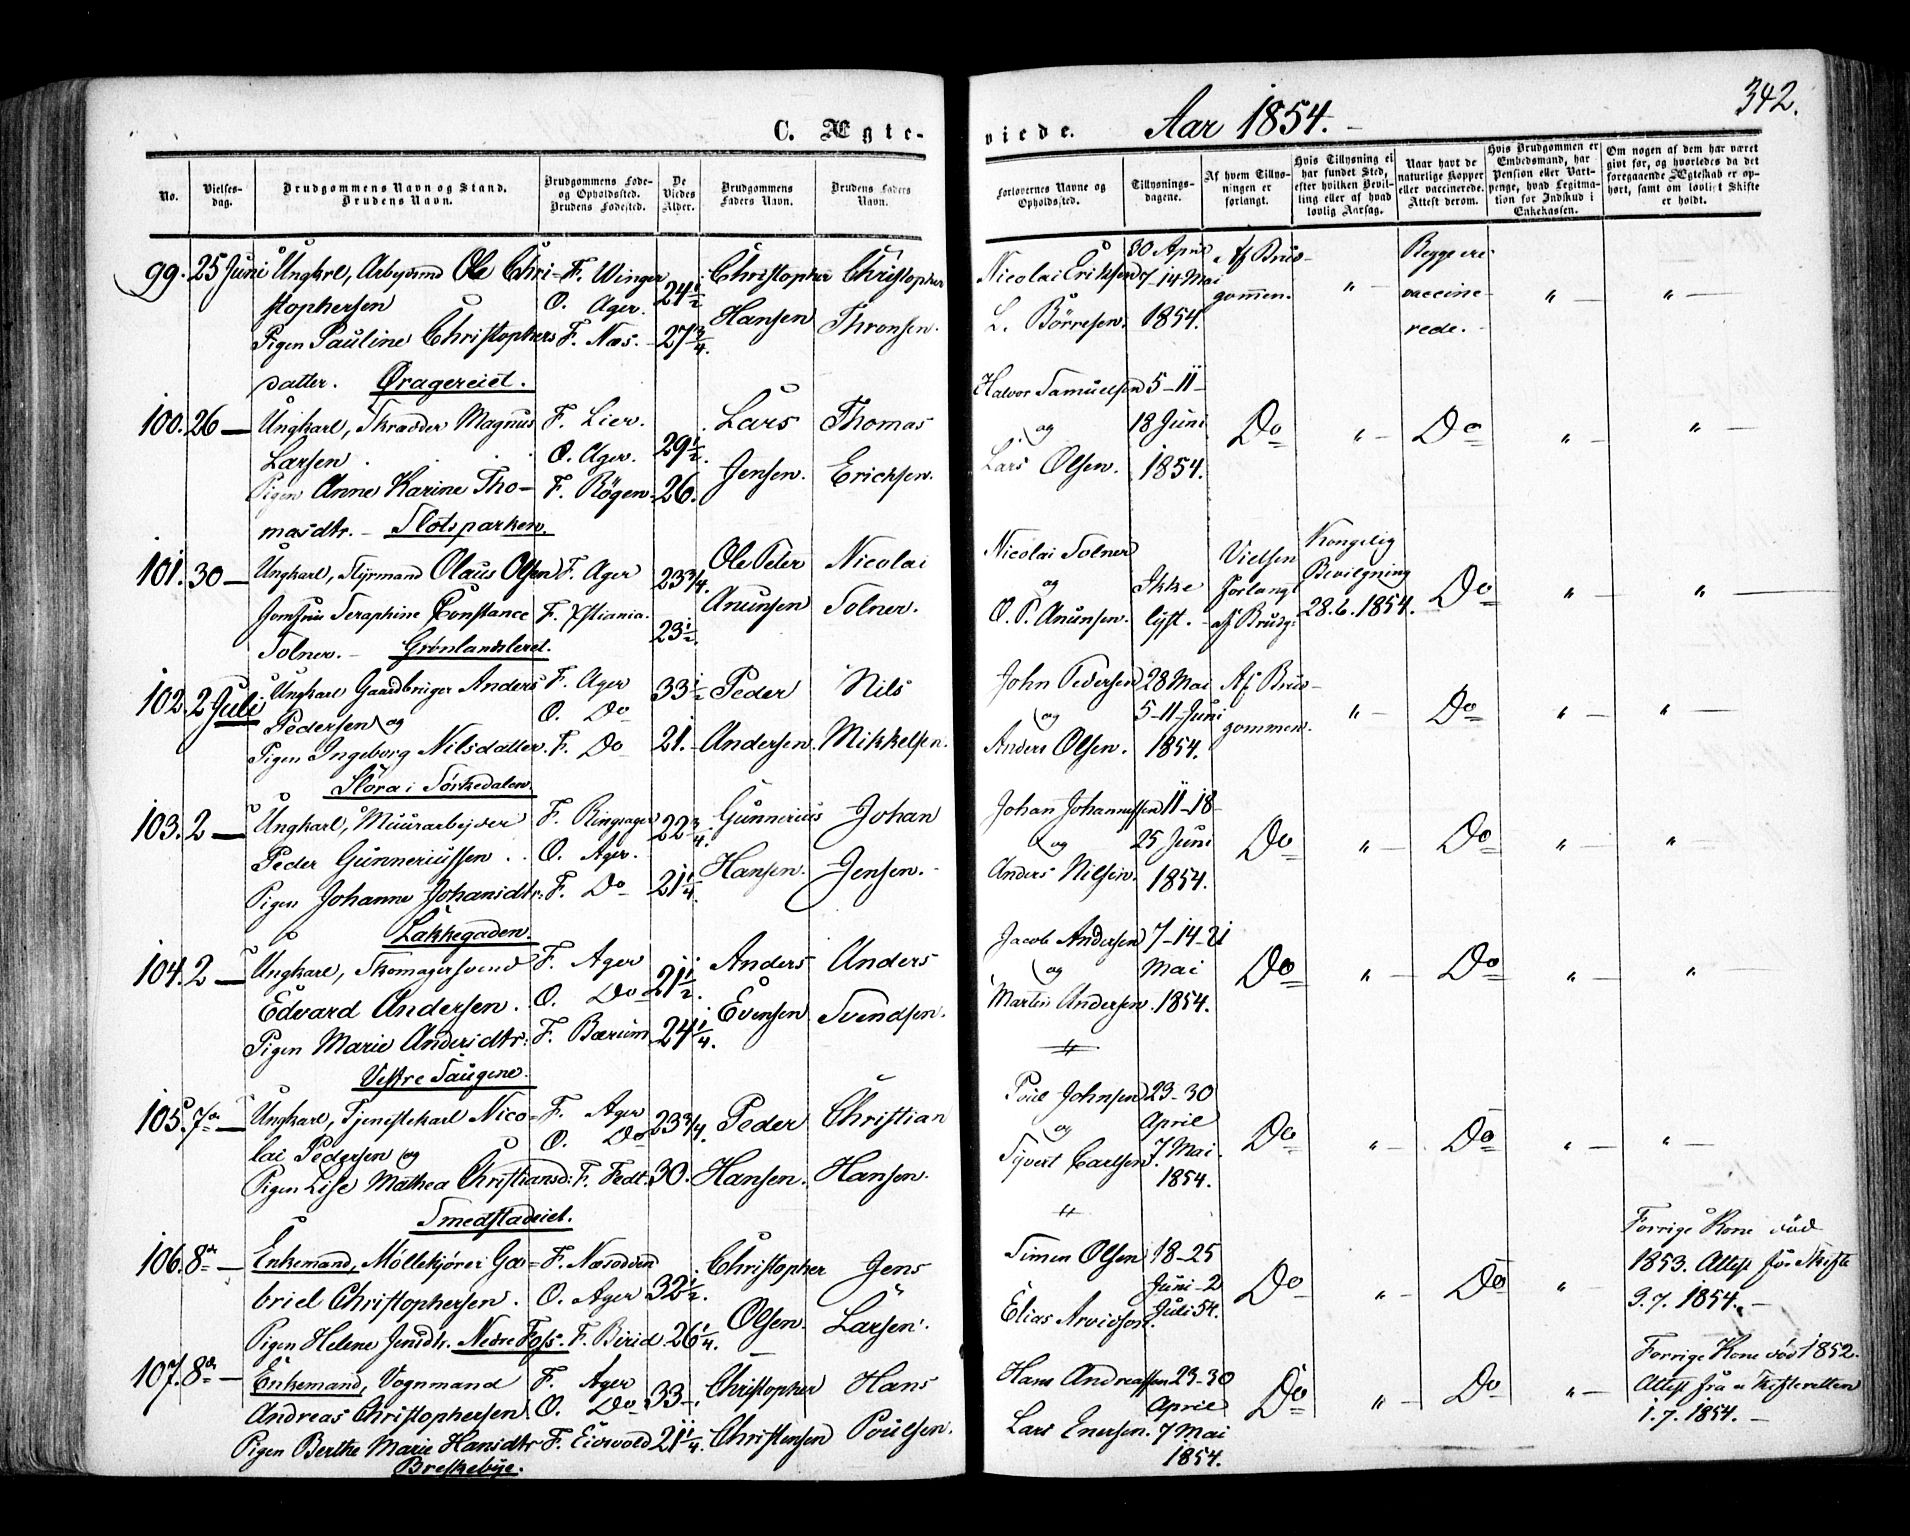 342.
C. Ægte-
viede. Aar 1854.
No.
Vielses-
dag.
Brudgommens Navn og Stand.
Brudens Navn.
Brudgommens Føde-
og Opholdssted.
Brudens Fødested.
De
Viedes
Alder.
Brudgommens
Faders Navn.
Brudens Faders
Navn.
Forlovernes Navne og
Opholdssted.
Tillysnings-
dagene.
Af hvem Tillys-
ningen er
forlangt.
Hvis Tillysning ei
har fundet Sted,
efter hvilken Bevil-
ling eller af hvad
lovlig Aarsag.
Naar havt de
naturlige Kopper
eller vaccinerede.
Attest derom.
Hvis Brudgommen er
Embedsmand, har
Pension eller Vart-
penge, hvad Legitma-
tion for Indskud i
Enkekassen.
Om nogen af dem har været
givt før, og hvorledes da det
foregaaende Ægteskab er op-
hørt, samt om lovligt Skifte
er holdt.
99. 25 Juni Ungkrl, Arbejdsmd Ole Chri- F. Winger 24½ Christopher Christopher
stophersen O. Ager. Hansen Thronsen.
Pigen Pauline Christophers F. Næs. 27¾.
datter. Øragereiet.
Nicolai Eriksen 30 April Af Brud- " Begge ere " "
7-14 Mai gommen. vaccine-
L. Börresen. 1854. rede.
100. 26 — Ungkarl, Skrædder Magnus F. Lier. 29½. Lars Thomas
Larsen O. Ager. Jensen. Erichsen.
Pigen Anne Karine Tho- F. Rögen 26.
masdtr. - Slotsparken.
Halvor Samuelsen 5-11-
og 18 Juni Do " Do " "
Lars Olsen. 1854.
101. 30 — Ungkarl, Styrmand Olaus Olsen F. Ager 23¾. Ole Peter Nicolai
Jomfru Seraphine Constance F. Xstiania. Anunsen Solner.
Solner. - Grønlandsleret. 23½
Nicolai Solner Vielsen Kongelig
og Ikke forlangt Bevilgning Do " "
O. P. Anunsen. lyst. af Brudg: 28.6.1854.
102. 2 Juli Ungkarl Gaardbruger Anders F. Ager 33½ Peder Nils
Pedersen og O. Do
Pigen Ingeborg Nilsdatter. F. Do 21. Andersen. Mikkelsen.
Slora i Sørkedalen
John Pedersen 28 Mai Af Brud-
og 5-11-Juni gommen. " Do " "
Anders Olsen. 1854.
103. 2 — Ungkarl, Muurarbejder F. Ringsager 22¾. Gunnerius Johan
Peder Gunneriussen O. Ager. Hansen. Jensen.
Pigen Johanne Johansdtr: F. Do 21¼.
Lakkegaden.
Johan Johannessen 11-18-
og 25 Juni Do " Do " "
Anders Nilsen. 1854.
104. 2 — Ungkarl, Skomagersvend F. Ager 21½. Anders Anders
Edvard Andersen. O. Do Evensen Svendsen.
Pigen Marie Andersdtr: F. Bærum 24¼.
Vestre Saugene.
Jacob Andersen 7-14-21
og Mai Do " Do " "
Martin Andersen. 1854.
105. 7de — Ungkarl, Tjenestekarl Nico- F. Ager 23¾. Peder Christian
lai Pedersen og O. Do
Pigen Lise Mathea Christiansd: F. Fedt. 30. Hansen. Hansen.
Smedstadeiet.
Poul Johnsen 23-30
og April Do " Do " "
Syvert Carlsen. 7 Mai
1854.
106. 8de — Enkemand, Møllekjører Ga- F. Næsodden 32½. Christopher Jens
briel Christophersen. O. Ager Olsen. Larsen.
Pigen Helene Jensdtr. Nedre Foss. F. Birid 26¼.
Simen Olsen 18-25 Forrige Kone död
Juni-2 Do " Do " 1853. Attest for Skifte
Elias Arvidson. Juli 54. 3.7.1854.
107. 8de — Enkemand, Vognmand F. Ager 33. Christopher Hans
Andreas Christophersen O. Do
Pigen Berthe Marie Hansdtr F. Eidsvold 21¼. Christensen Poulsen.
Breskebye.
Hans Andreassen 23-30 Forrige Kone död 1852.
April Do " Do " Attest fra Skifteretten
Lars Enersen. 7 Mai 1.7.1854.
1854.